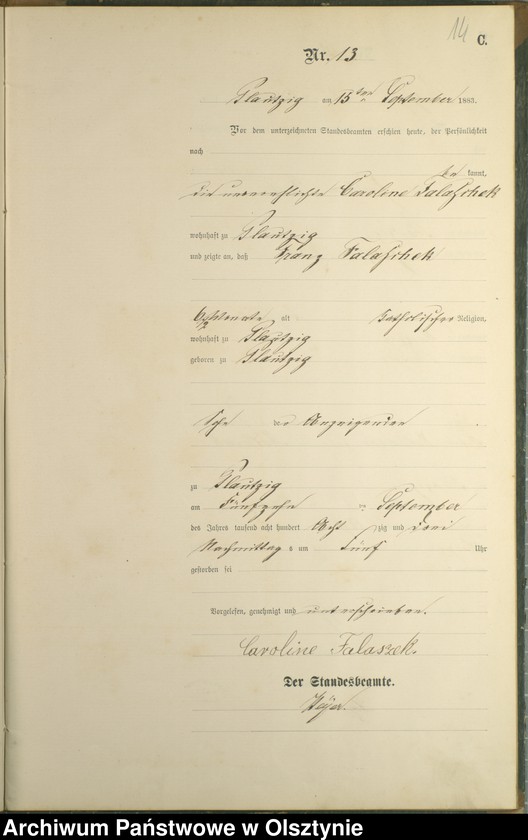 14
C.
Nr. 13
Plautzig am 15ten September 1883.
Vor dem unterzeichneten Standesbeamten erschien heute, der Persönlichkeit
nach
be kannt,
die unverehlichte Caroline Falaschek
wohnhaft zu Plautzig
und zeigte an, daß Franz Falaschek
Monate alt katholischer Religion,
wohnhaft zu Plautzig
geboren zu Plautzig
Sohn der Anzeigenden
zu Plautzig
am Fünfzehn September
des Jahres tausend acht hundert Acht zig und drei
Nachmittag s um Fünf Uhr
gestorben sei
Vorgelesen, genehmigt und unterschrieben.
Caroline Falaszek.
Der Standesbeamte.
Archiwum Państwowe w Olsztynie